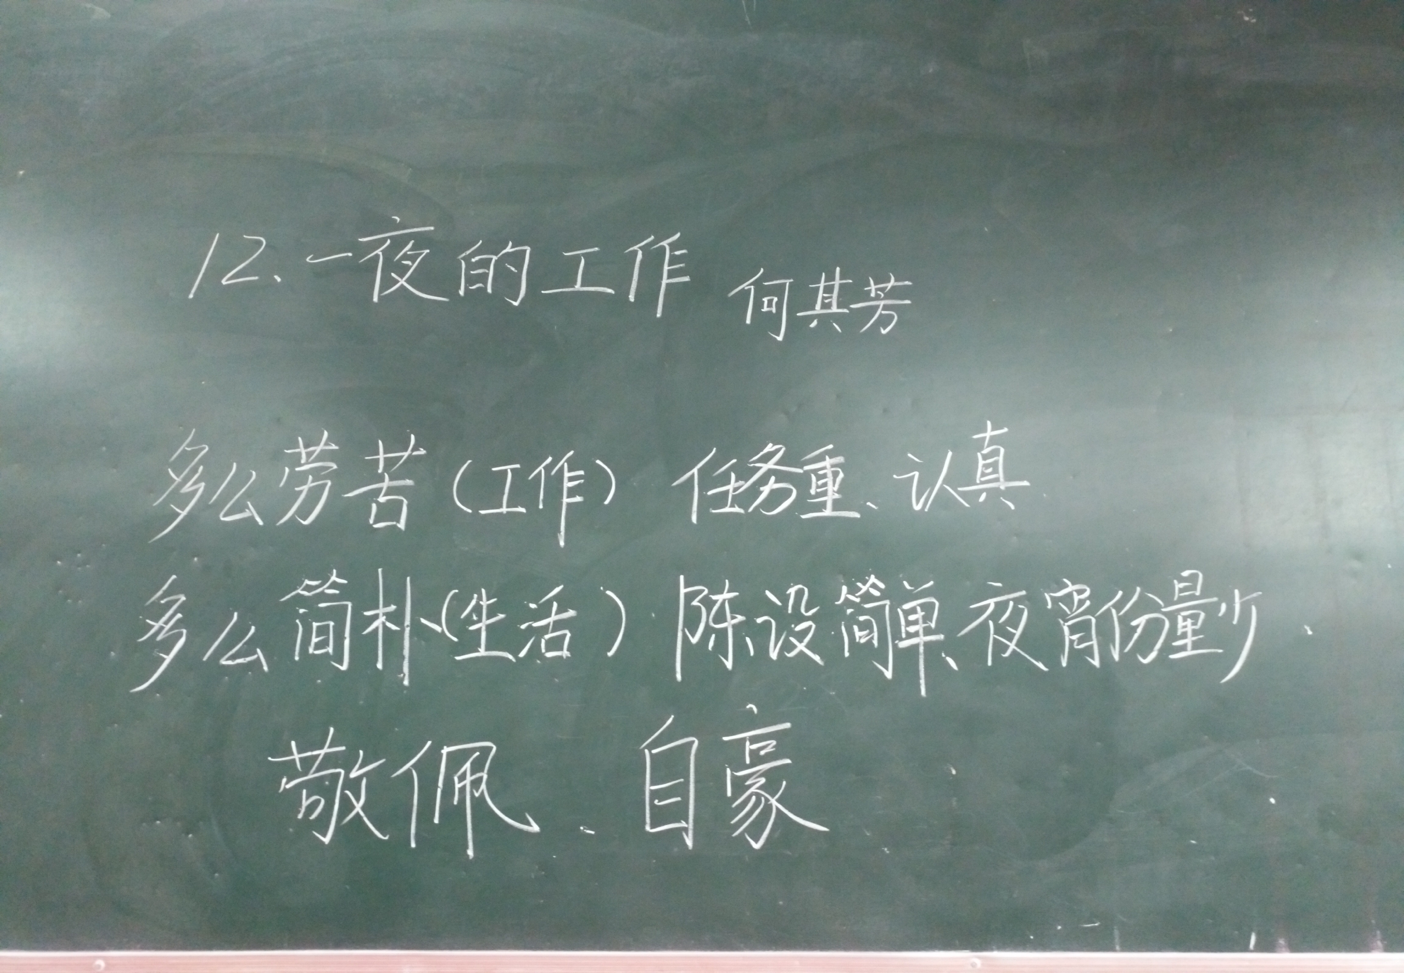 12、一夜的工作 何其芳
多么劳苦（工作） 任务重、认真
多么简朴（生活） 陈设简单、夜宵份量少.
敬佩、自豪